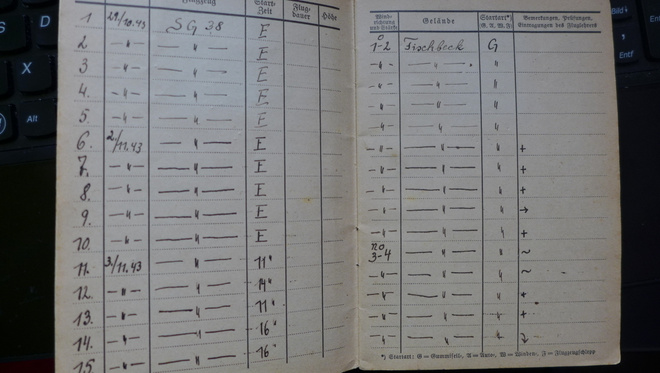 Flugzeug Start- Zeit Flug- dauer Höhe
1 29/10.43 SG 38 E
2 -"- -"- E
3 -"- -"- E
4. -"- -"- E
5. -"- -"- E
6. 2/11.43 -"- E
7. -"- -"- E
8. -"- -"- E
9. -"- -"- E
10. -"- -"- E
11. 3/11.43 -"- 11"
12. -"- -"- 14"
13. -"- -"- 11"
14. -"- -"- 16"
15. -"- -"- 16"
Gelände Startart*) Bemerkungen, Prüfungen,
(G. A. W. F.) Eintragungen des Fluglehrers
O
1-2 Fischbeck G
-"- -"- "
-"- -"- "
-"- -"- "
-"- -"- "
-"- -"- " +
-"- -"- " +
-"- -"- " +
-"- -"- " →
-"- -"- " +
NO
3-4 -"- " ~
-"- -"- " ~
-"- -"- " +
-"- -"- " +
-"- -"- "
*) Startart: G = Gummiseil, A = Auto, W = Winden, F = Flugzeugschlepp
Alt
Entf
S
D